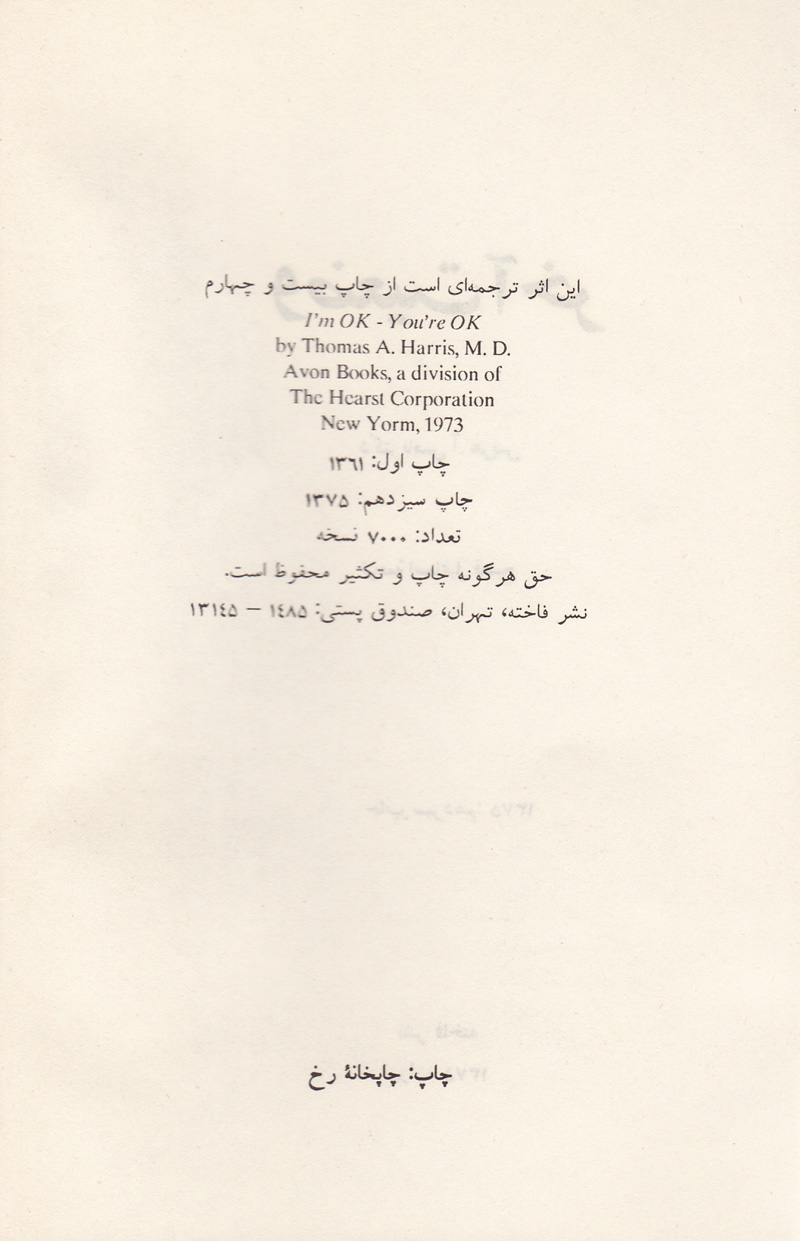 این اثر ترجمه‌ای است از چاپ بیست و چهارم
I'm OK - You're OK
by Thomas A. Harris, M. D.
Avon Books, a division of
The Hearst Corporation
New Yorm, 1973
چاپ اول: ۱۳۶۱
چاپ سیزدهم: ۱۳۷۵
تعداد: ۷۰۰۰ نسخه
حق هرگونه چاپ و تکثیر محفوظ است.
نشر فاخته، تهران، صندوق پستی: ۱۴۸۵ – ۱۳۱۴۵
چاپ: چاپخانهٔ رخ